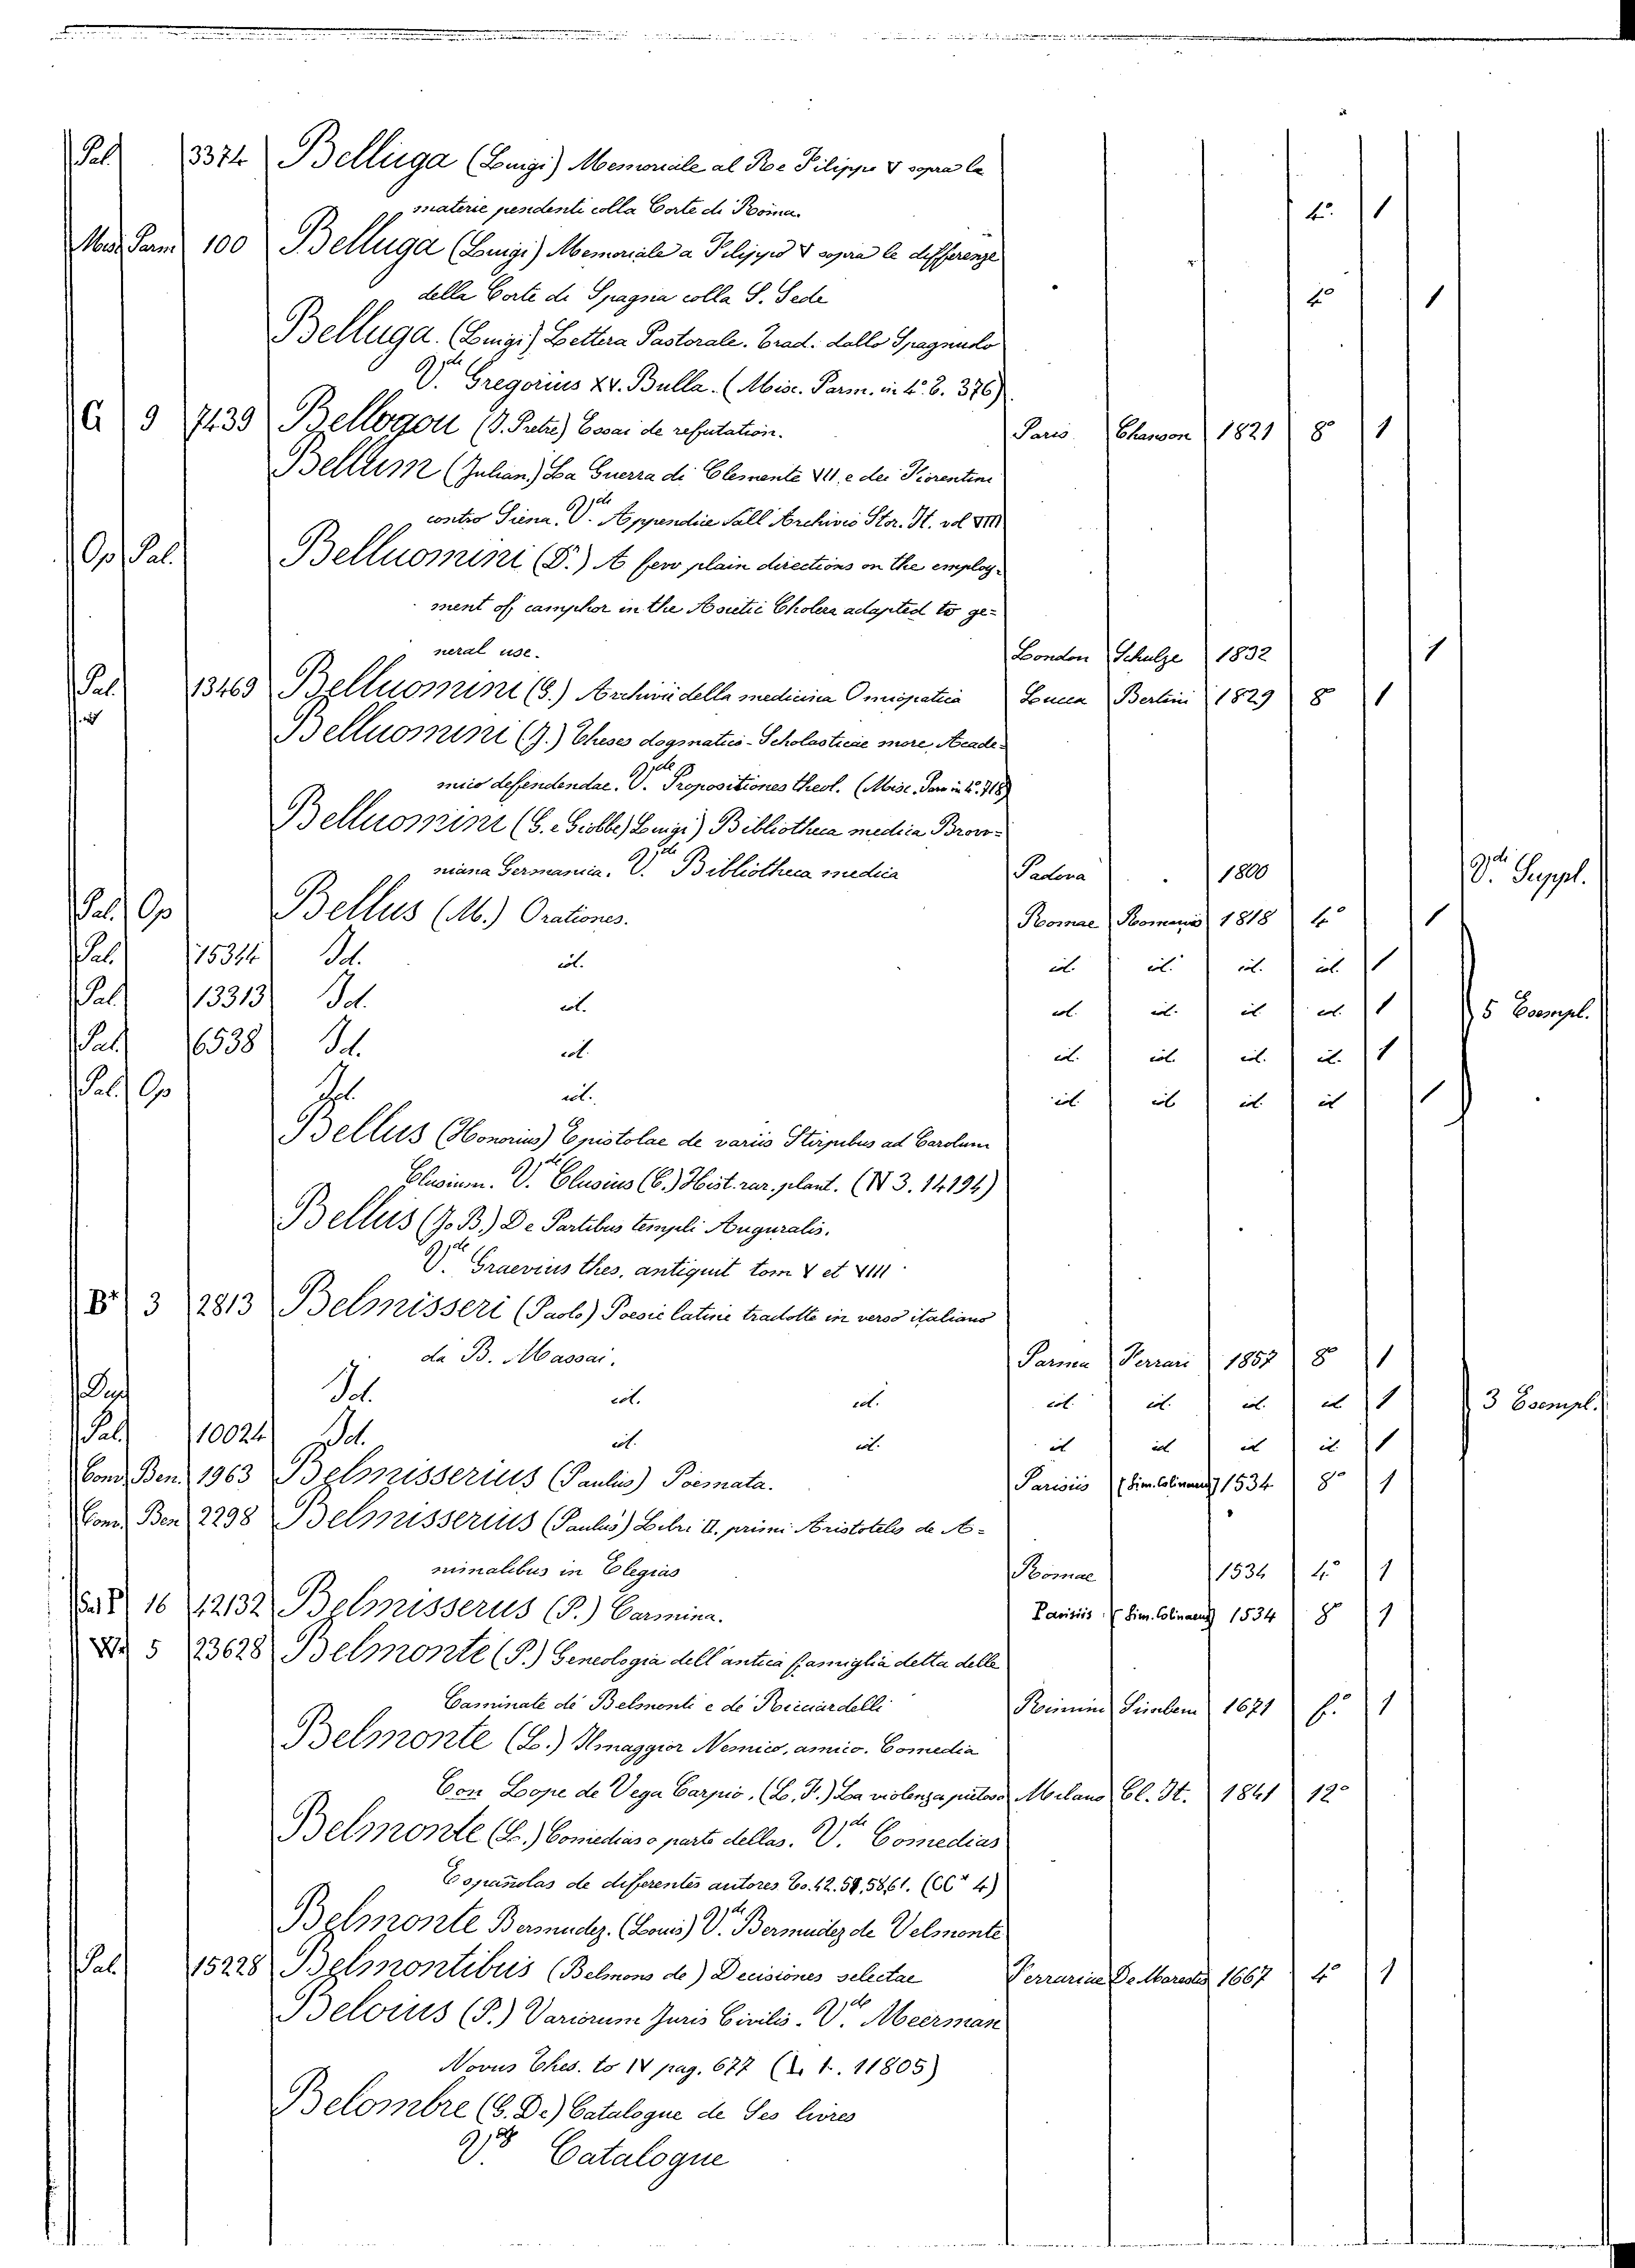 Pal. 3374 Belluga (Luigi) Memoriale al Re Filippo V sopra la
materie pendenti colla Corte di Roma. 4.° 1
Misc. Parm. 100 Belluga (Luigi) Memoriale a Filippo V sopra le differenze
della Corte di Spagna colla S. Sede 4° 1
Belluga. (Luigi) Lettera Pastorale. Trad. dallo Spagnuolo
V.de Gregorius XV. Bulla. (Misc. Parm. in 4.° 6. 376)
G 9 7439 Bellogou (J. Pretre) Essai de refutation. Paris Chanson 1821 8° 1
Bellum (Julian.) La Guerra di Clemente VII. e dei Fiorentini
contro Siena. V.de Appendice all' Archivio Stor. It. vol VIII
Op. Pal. Belluomini (F.) A few plain directions on the employ-
ment of camphor in the Asiatic Cholera adapted to ge=
neral use. London Schulze 1832 1
Pal. 13469 Belluomini (G.) Archivii della medicina Omiopatica Lucca Bertini 1829 8° 1
Belluomini (J.) Theses dogmatico-Scholasticae more Acade-
mico defendendae. V.de Propositiones theol. (Misc. Parm in 4.° 718)
Belluomini (G. e Giobbe) Luigi) Bibliotheca medica Brow=
niana Germanica. V.de Bibliotheca medica Padova . 1800 V.di Suppl.
Pal. Op Bellus (M.) Orationes. Romae Romanis 1818 4° 1
Pal. 15344 Id. id. id. id. id. id. 1
Pal. 13313 Id. id. id. id. id. id. 1 5 Esempl.
Pal. 6538 Id. id. id. id. id. id. 1
Pal. Op Id. id. id. id. id. id. 1
Bellus (Honorius) Epistolae de variis Stirpibus ad Carolum
Clusium. V.de Clusius (C.) Hist. rar. plant. (IV 3. 14194)
Bellus (J. B.) De Partibus templi Auguralis.
V.de Graevius thes. antiquit tom V et VIII
B* 3 2813 Belmisseri (Paolo) Poesie latine tradotte in verso italiano
da B. Massai. Parma Ferrari 1857 8° 1
Dup. Id. id. id. id. id. id. id. 1 3 Esempl.
Pal. 10024 Id. id. id. id. id. id. id. 1
Cons. Ben. 1963 Belmisserius (Paulus) Poemata. Parisiis (Sim. Colinaeus) 1534 8° 1
Cons. Ben 2298 Belmisserius (Paulus) Libri II. primi Aristotelis de A-
nimalibus in Elegias Romae 1534 4.° 1
16 12132 Belmisserus (P.) Carmina. Parisiis (Sim. Colinaeus) 1534 8° 1
5 23628 Belmonte (P.) Geneologia dell' antica famiglia detta delle
Caminate de Belmonti e de Ricciardelli Rimini Simbem 1671 f.° 1
Belmonte (L.) Il maggior Nemico, amico. Comedia
Con Lope de Vega Carpio. (L. F.) La violenza Milano Cl. It. 1841 12°
Belmonte (L.) Comedias o parte dellas. V.de Comedias
Españolas de differentes autores. to. 42. 58. 61. (CC* 4)
Belmonte Bermudez. (Louis) V.de Bermudez de Velmonte
Pal. 15228 Belmontibus (Belmons de) Decisiones selectae Ferrariae De Marestis 1667 4° 1
Beloius (P.) Variorum Juris Civilis. V.de Meerman
Novus Thes. to IV pag. 677 (L 1. 11805)
Belombre (G. De) Catalogue de Ses livres
V.de Catalogue